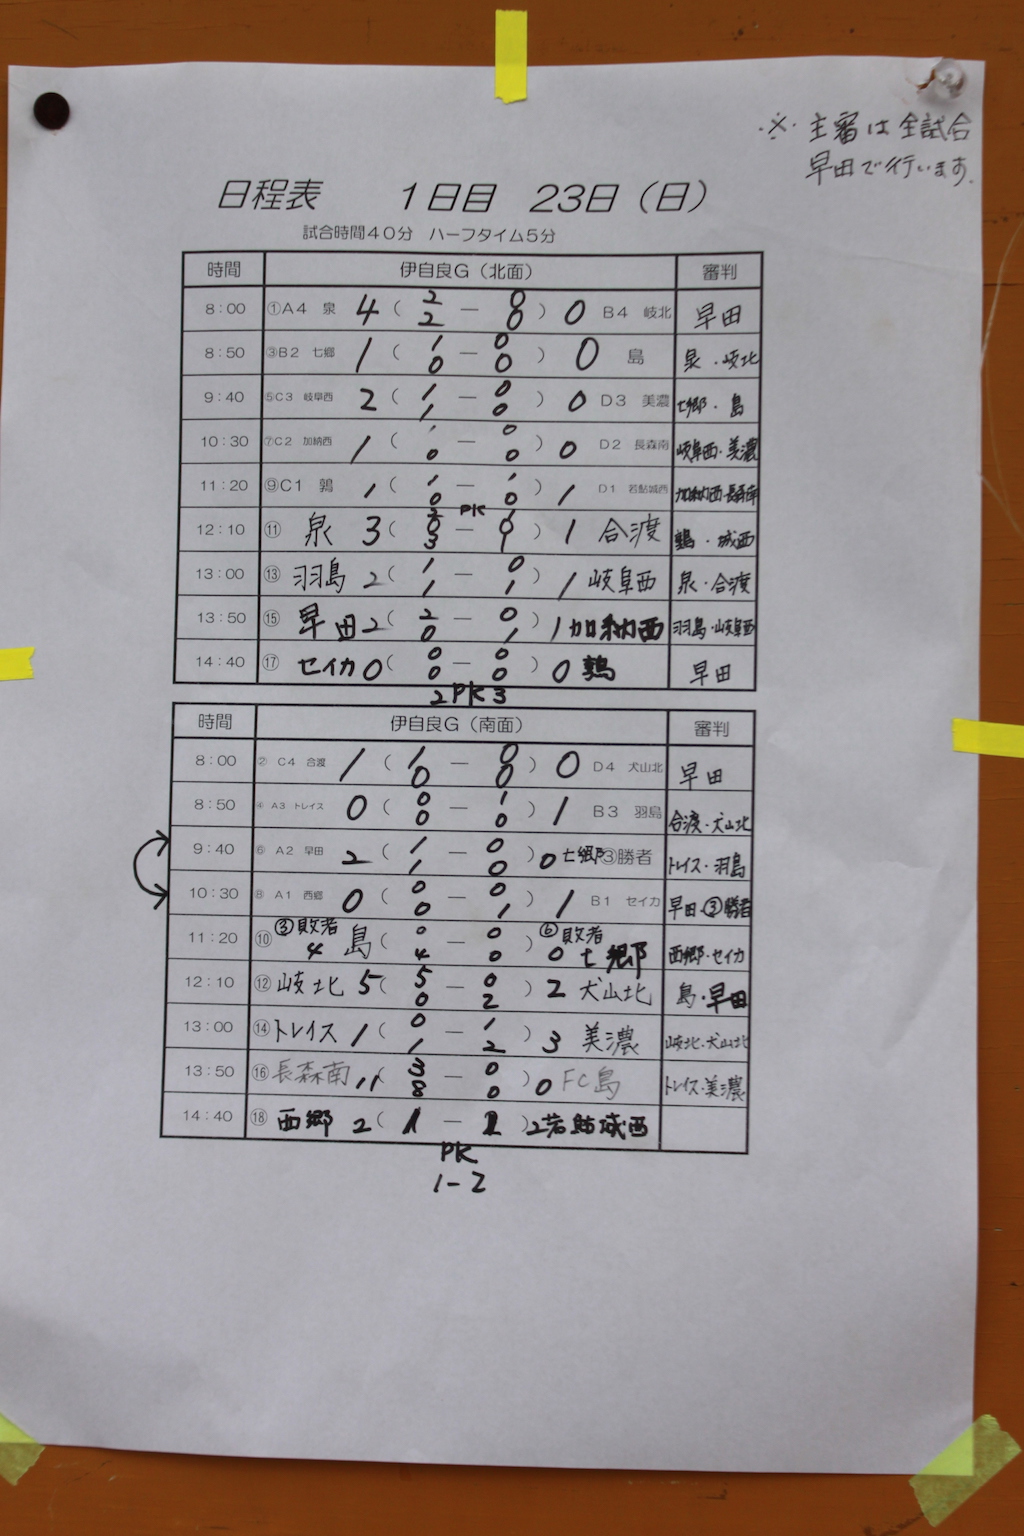 ※ 主審は全試合
早田で行います.
日程表 1日目 23日(日)
試合時間40分 ハーフタイム5分
時間 伊自良G(北面) 審判
8:00 ①A4 泉 4 ( 2 2 - 0 0 ) 0 B4 岐北 早田
8:50 ③B2 七郷 1 ( 1 0 - 0 0 ) 0 島 泉・岐北
9:40 ⑤C3 岐阜西 2 ( 1 1 - 0 0 ) 0 D3 美濃 七郷・島
10:30 ⑦C2 加納西 1 ( 1 0 - 0 0 ) 0 D2 長森南 岐阜西・美濃
11:20 ⑨C1 鶉 1 ( 1 0 - 1 0 ) 1 D1 若鮎城西 加納西・長森南
12:10 ⑪ 泉 3 ( 2 0 3 - PK 1 0 1 ) 1 合渡 鶉・城西
13:00 ⑬ 羽島 2 ( 1 1 - 0 1 ) 1 岐阜西 泉・合渡
13:50 ⑮ 早田 2 ( 2 0 - 0 1 ) 1 加納西 羽島・岐阜西
14:40 ⑰ セイカ 0 ( 0 0 - 0 0 ) 0 鶉 早田
2 PK 3
時間 伊自良G(南面) 審判
8:00 ② C4 合渡 1 ( 1 0 - 0 0 ) 0 D4 犬山北 早田
8:50 ④ A3 トレイス 0 ( 0 0 - 1 0 ) 1 B3 羽島 合渡・犬山北
9:40 ⑥ A2 早田 2 ( 1 1 - 0 0 ) 0 七郷③勝者 トレイス・羽島
10:30 ⑧ A1 西郷 0 ( 0 0 - 0 1 ) 1 B1 セイカ 早田・③勝者
11:20 ⑩ ③敗者 4 島 ( 0 4 - 0 0 ) ⑥敗者 0 七郷 西郷・セイカ
12:10 ⑫ 岐北 5 ( 5 0 - 0 2 ) 2 犬山北 島・早田
13:00 ⑭ トレイス 1 ( 0 1 - 1 2 ) 3 美濃 岐北・犬山北
13:50 ⑯ 長森南 11 ( 3 8 - 0 0 ) 0 FC島 トレイス・美濃
14:40 ⑱ 西郷 2 ( 1 - ) 2 若鮎城西
PK
1-2